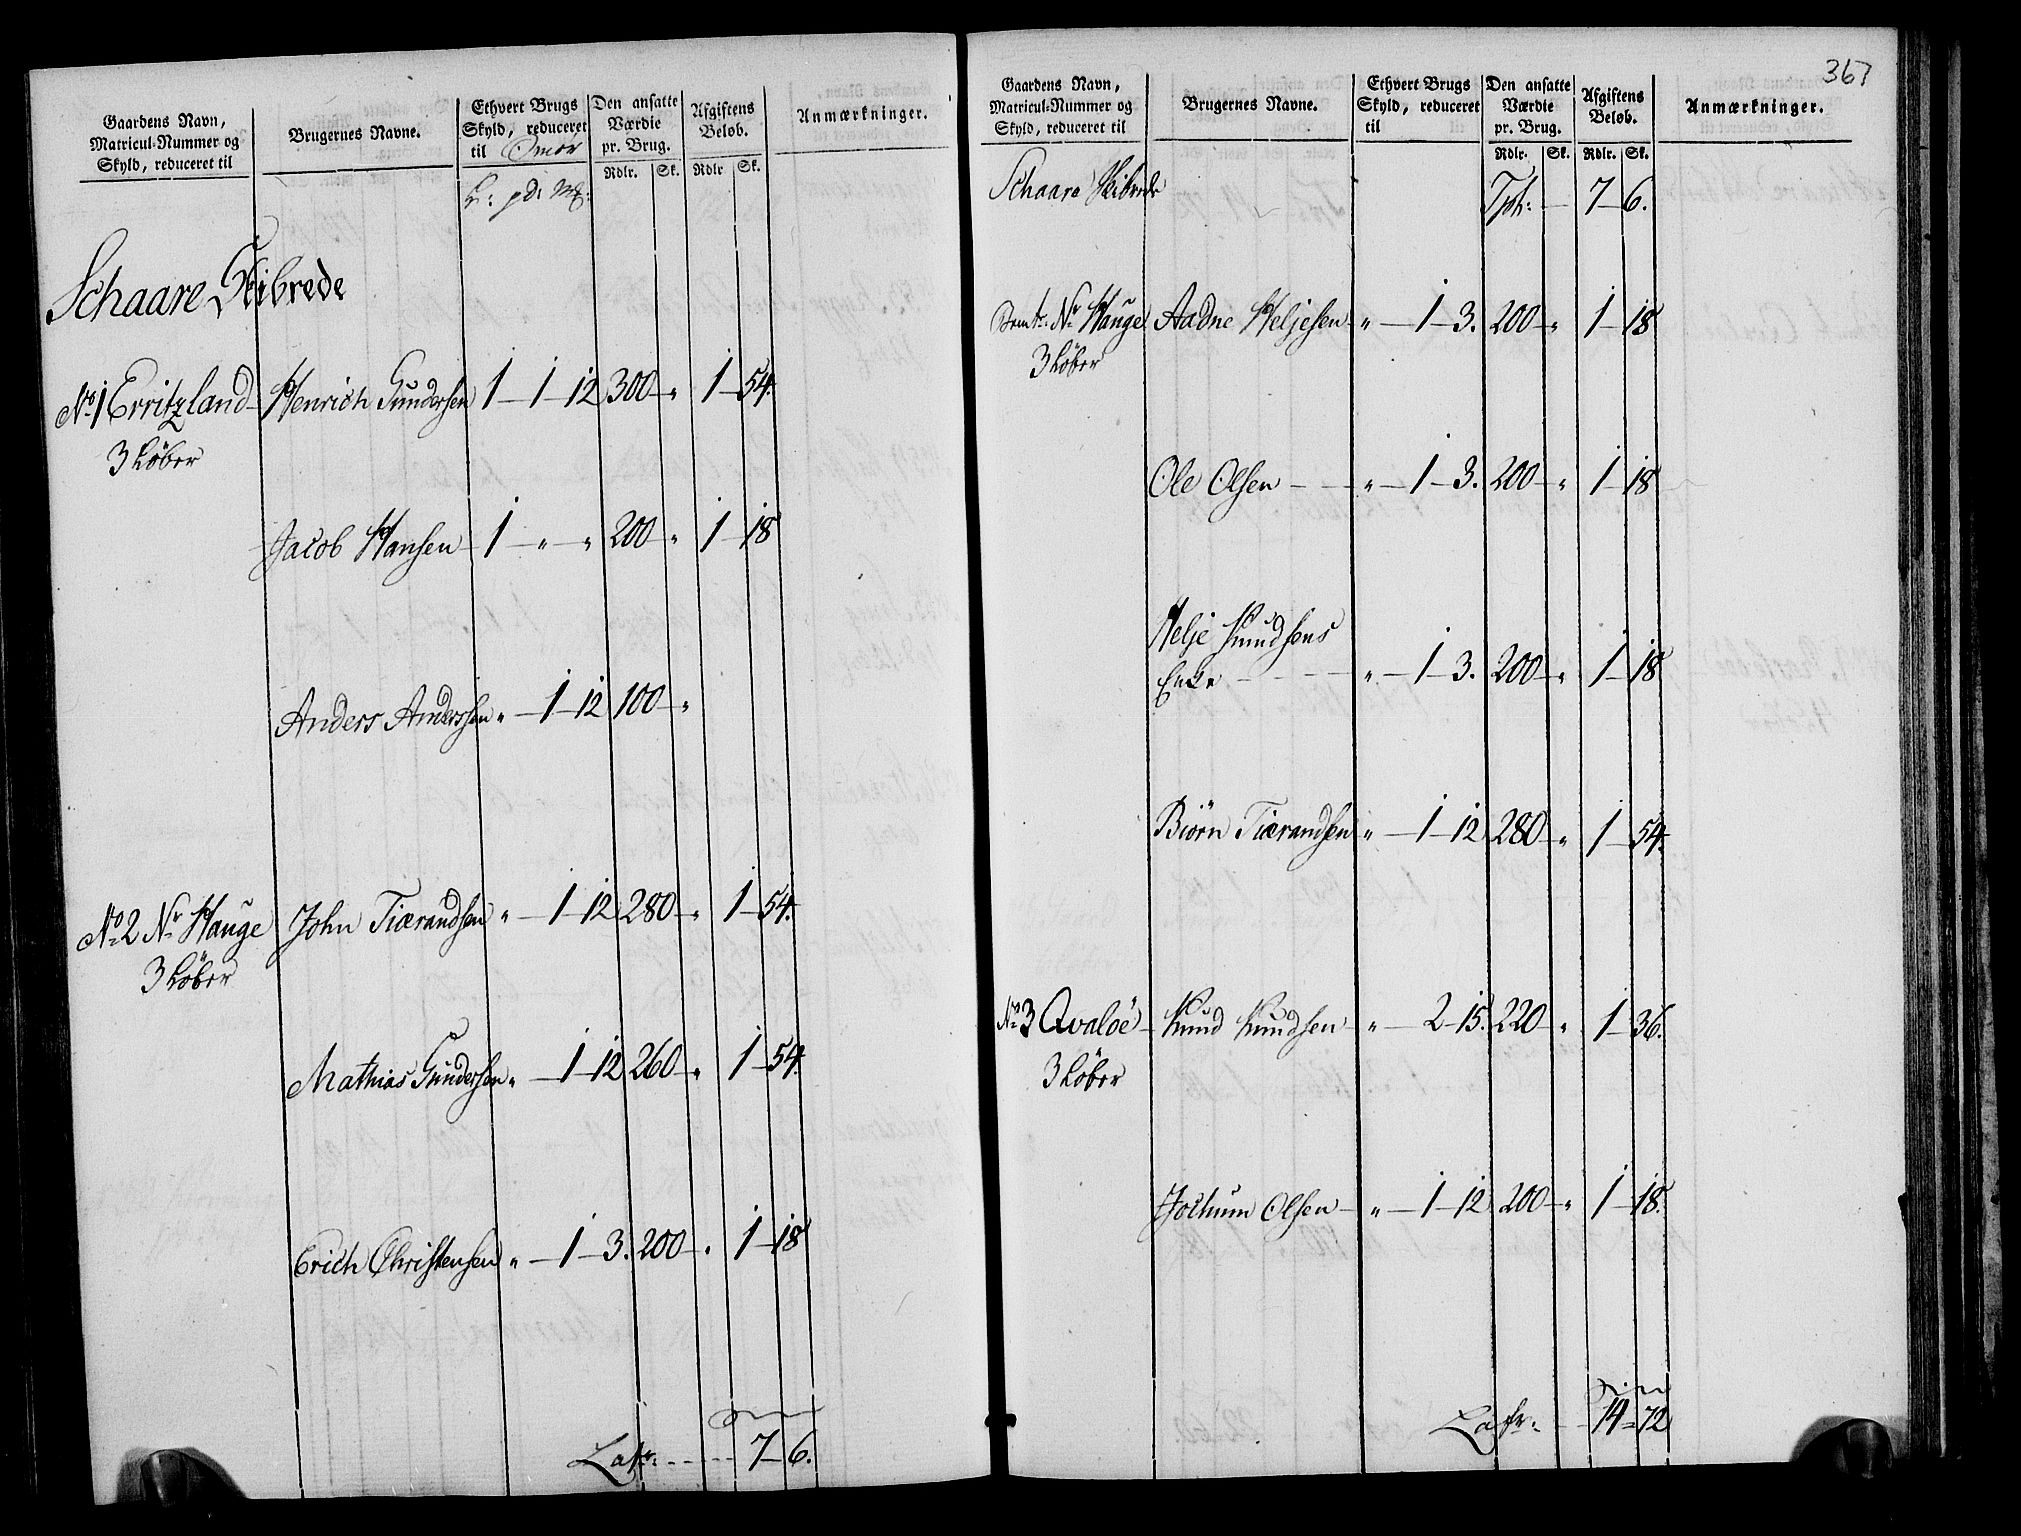 Gaardens Navn,
Matricul-Nummer og
Skyld, reduceret til
Brugernes Navne.
Ethvert Brugs
Skyld, reduceret
til Smør
Den ansatte
Værdie
pr. Brug.
Rdlr. Sk.
Afgiftens
Beløb.
Rdlr Sk.
Anmærkninger.
Schaare Skibrede
No 1 Erritzland Henrich Gundersen 1 - 1 - 12 300 - " 1 - 54.
3 Løber
Jacob Hansen 1 - " - " 200 - " 1 - 18
Anders Anderssen " - 1 - 12 100 - "
No 2 Nr Hauge John Tiærandsen " - 1 - 12 280 - " 1 - 54.
3 Løber
Mathias Gundersen " - 1 - 12 260 - " 1 - 54.
Erich Christensen " - 1 - 3. 200 - " 1 - 18
Latr: - - - - - 7 - 6.
367
Gaardens Navn,
Matricul-Nummer og
Skyld, reduceret til
Brugernes Navne.
Ethvert Brugs
Skyld, reduceret
til
Den ansatte
Værdie
pr. Brug.
Rdlr. Sk.
Afgiftens
Beløb.
Rdlr. Sk.
Anmærkninger.
Schaare Skibrede 7 - 6.
Nr Hauge Aadne Heljesen " - 1 - 3. 200 - " 1 - 18
3 Løber
Ole Olsen - - " - 1 - 3. 200 - " 1 - 18
Helje Knudsens
Enke - - - - " - 1 - 3. 200 - " 1 - 18
Biørn Tiærandsen " - 1 - 12 280 - " 1 - 54.
No 3 Qvaløe Knud Knudsen - " - 2 - 15. 220 " 1 - 36.
3 Løber
Jochum Olsen - " - 1 - 12 200 - " 1 - 18.
Latr: - - 14 - 72